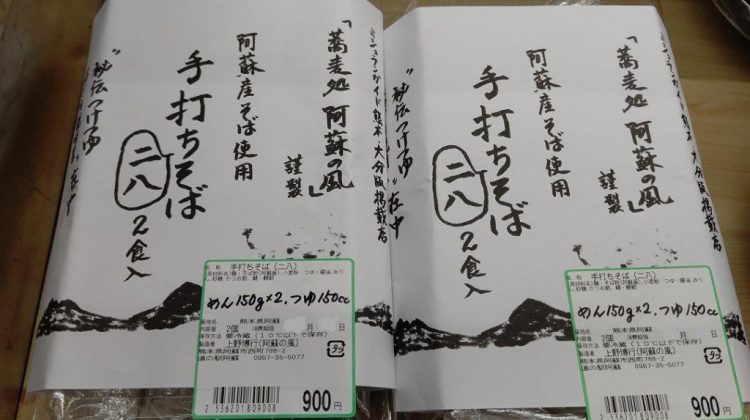 ミシュランガイド熊本・大分版掲載店
「蕎麦処 阿蘇の風」
謹製
阿蘇産そば使用
手打ちそば
二八
2食入
"秘伝つけつゆ"在中
名称 手打ちそば(二八)
めん150g×2.つゆ150cc
産地名 熊本県阿蘇
内容量 2個 消費期限 月 日
保存方法 要冷蔵(10℃以下で保存)
製造者 上野博行(阿蘇の風)
熊本県阿蘇市西町788-2
道の駅阿蘇 0967-35-5077
2 536201 809008
900円
ミシュランガイド熊本・大分版掲載店
「蕎麦処 阿蘇の風」
謹製
阿蘇産そば使用
手打ちそば
二八
2食入
"秘伝つけつゆ"在中
名称 手打ちそば(二八)
めん150g×2.つゆ150cc
熊本県阿蘇
内容量 2個 消費期限 月 日
保存方法 要冷蔵(10℃以下で保存)
製造者 上野博行(阿蘇の風)
熊本県阿蘇市西町788-2
道の駅阿蘇 0967-35-5077
2 536201 809008
900円